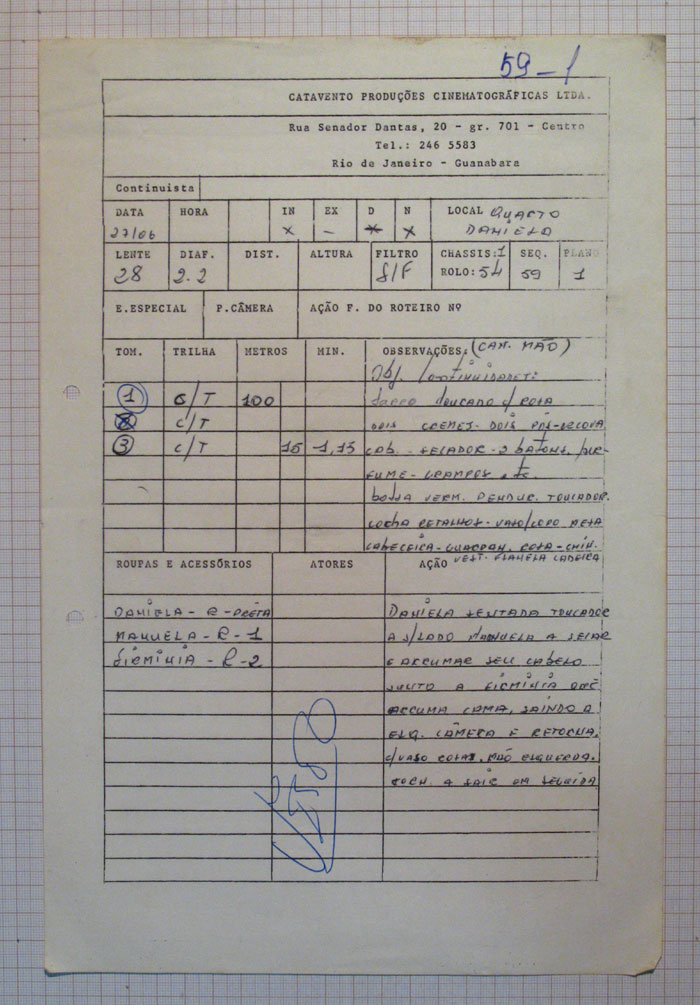 59-1
CATAVENTO PRODUÇÕES CINEMATOGRÁFICAS LTDA.
Rua Senador Dantas, 20 - gr. 701 - Centro
Tel.: 246 5583
Rio de Janeiro - Guanabara
Continuista
DATA HORA IN EX D N LOCAL QUARTO
27/06 x - x x DANIELA
LENTE DIAF. DIST. ALTURA FILTRO CHASSIS:1 SEQ. PLANO
28 2.2 S/F ROLO:54 59 1
E.ESPECIAL P.CÂMERA AÇÃO F. DO ROTEIRO Nº
TOM. TRILHA METROS MIN. OBSERVAÇÕES: (CAM. MÃO)
Obj. Continuidade:
1 C/T 100 toucado c/ rosa
C/T DOIS CREMES - DOIS PÓS - ESCOVA
3 C/T 15 -1,13 CAB. - - 2 BATONS, PER-
FUME - GRAMPOS, etc.
bolsa verm. pendur. toucador.
colcha retalhos - vaso/copo mesa
cabeceira - rosa -
vest. flanela cadeira
ROUPAS E ACESSÓRIOS ATORES AÇÃO
DANIELA - R - PRETA DANIELA SENTADA TOUCADOR
MANUELA - R - 1 A S/LADO MANUELA A
FIRMÍNIA - R - 2 E ARRUMAR SEU CABELO
JUNTO A FIRMÍNIA QUE
ARRUMA CAMA, SAINDO A
ESQ. CÂMERA E RETORNA.
C/VASO ROSAS. MÃO ESQUERDA.
TORN. A SAIR EM SEGUIDA